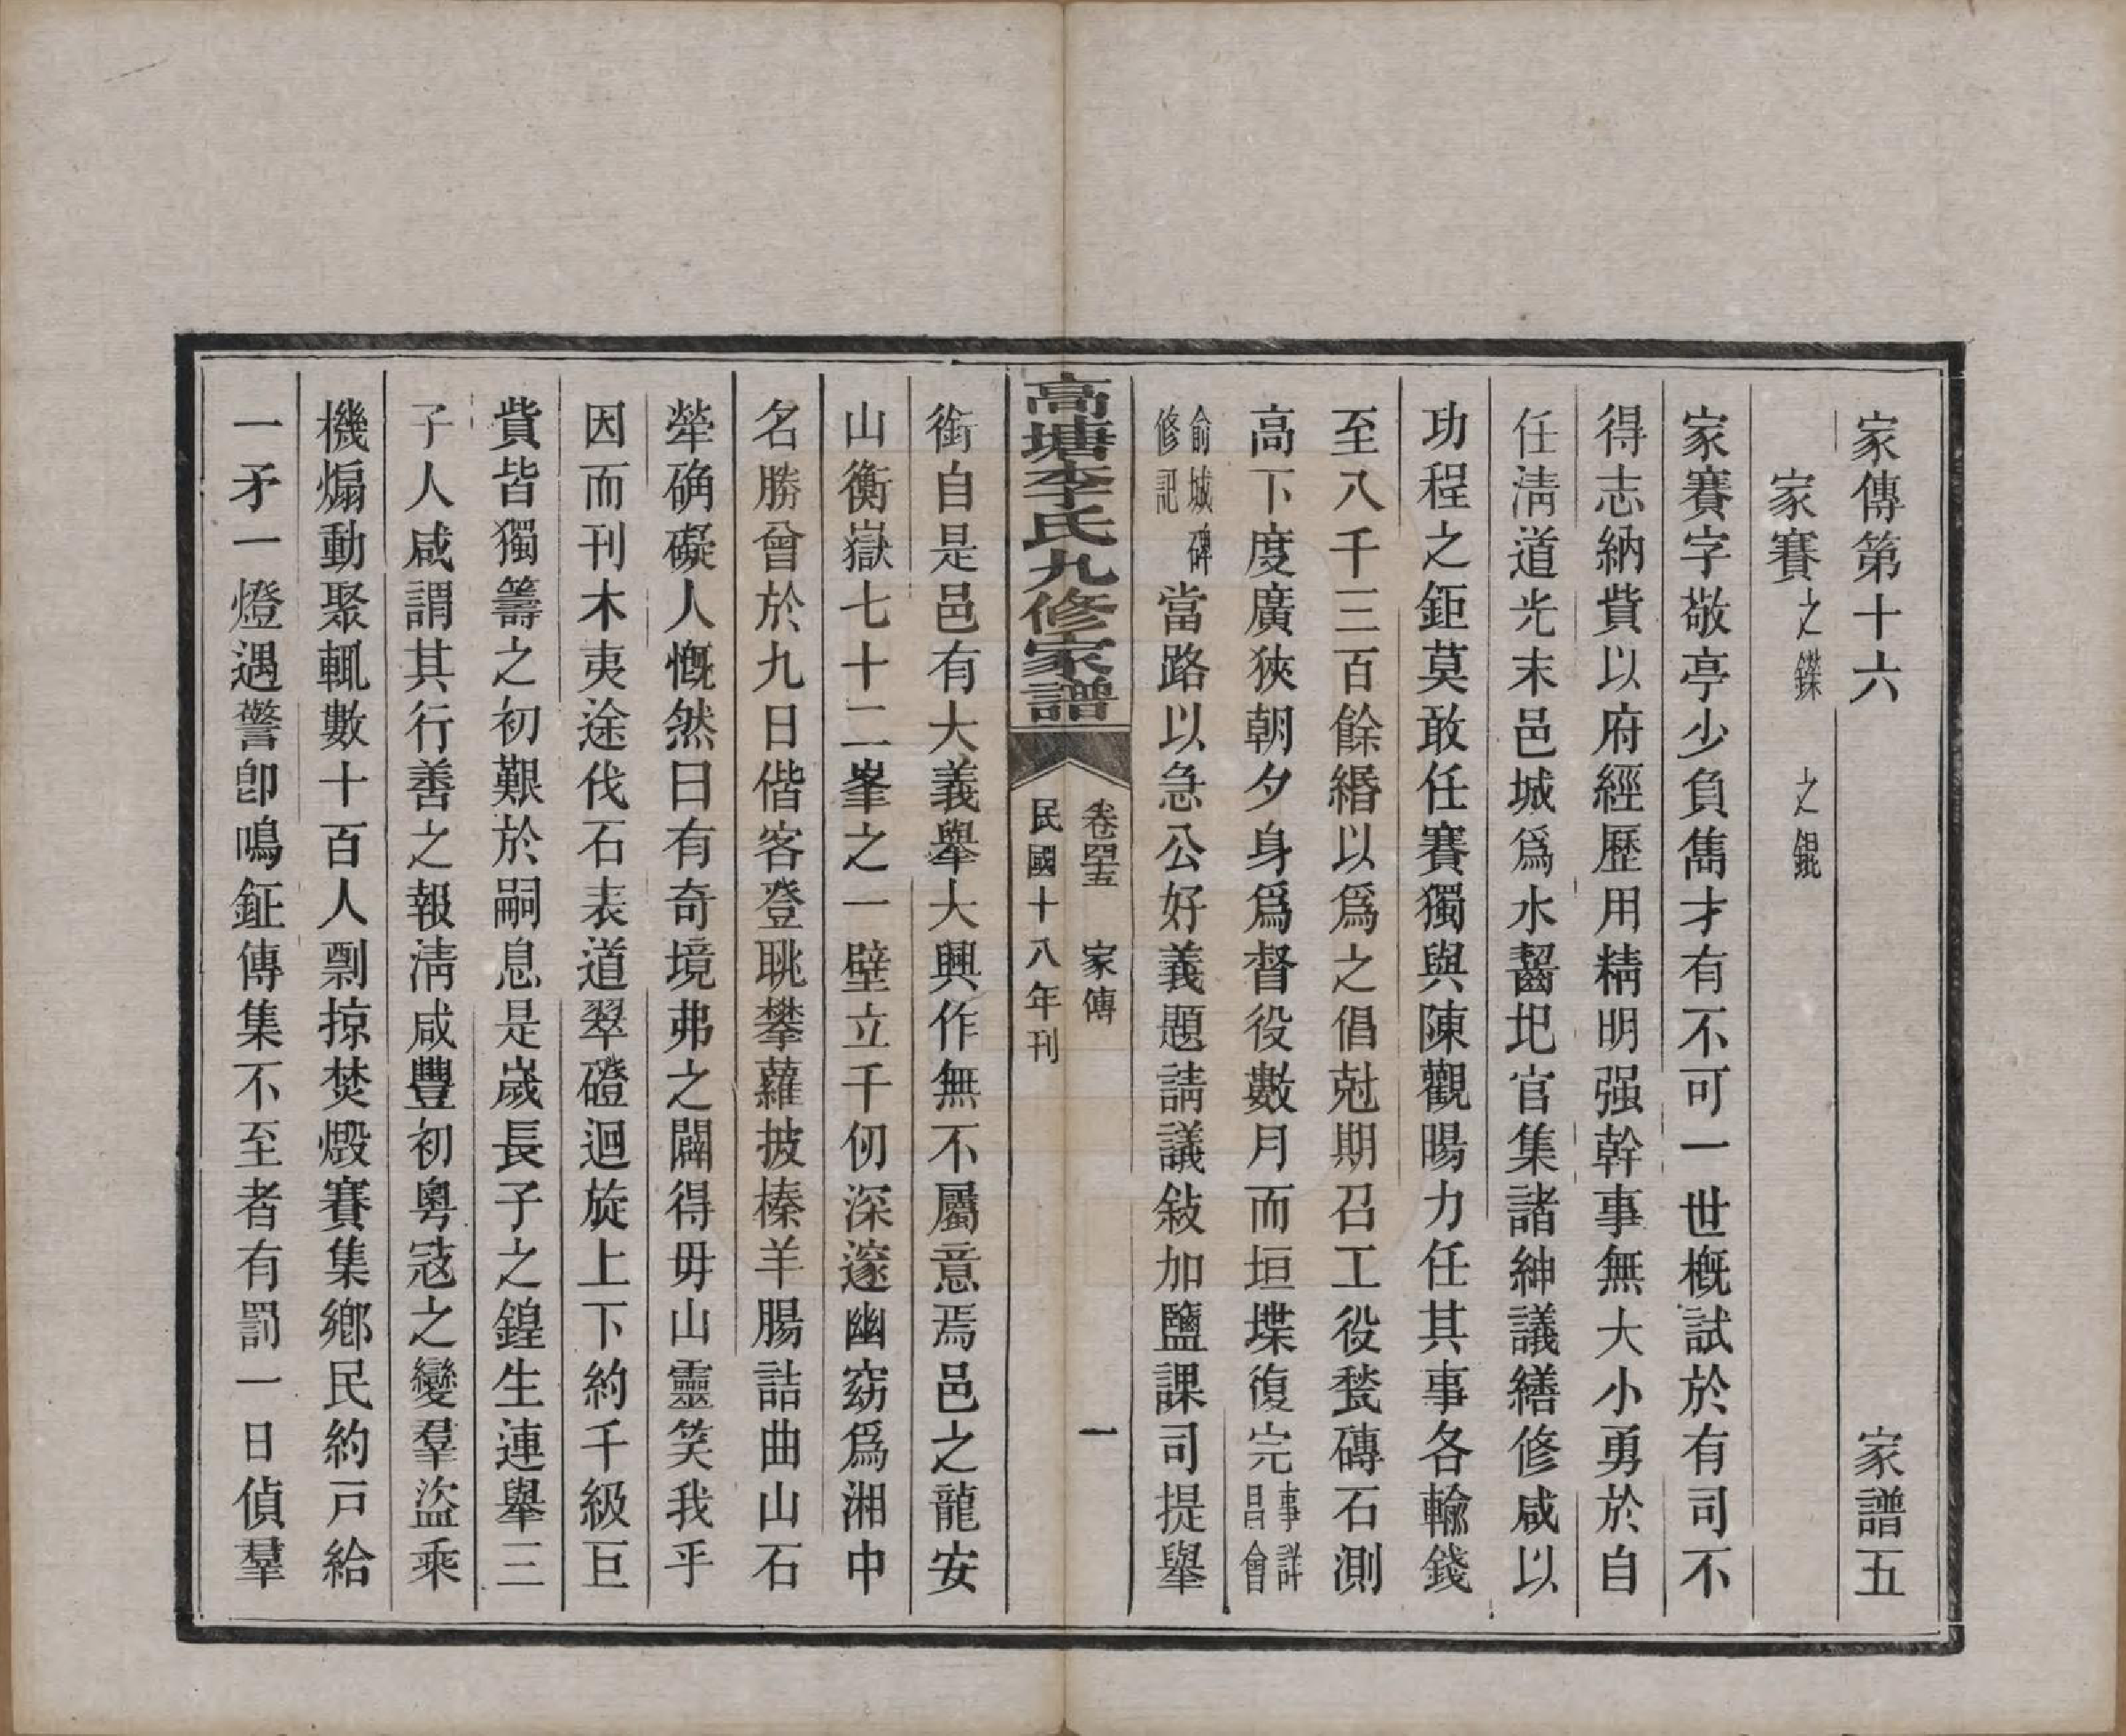 家傳第十六 家譜五
家賽 之鏶 之錕
家賽字敬亭少負雋才有不可一世概試於有司不
得志納貲以府經歷用精明强幹事無大小勇於自
任淸道光末邑城爲水齧圯官集諸紳議繕修咸以
功程之鉅莫敢任賽獨與陳觀暘力任其事各輸錢
至八千三百餘緡以爲之倡尅期召工役甃磚石測
高下度廣狹朝夕身爲督役數月而垣堞復完事詳昌會
俞城碑修記當路以急公好義題請議敍加鹽課司提舉
銜自是邑有大義舉大興作無不屬意焉邑之龍安
山衡嶽七十二峯之一壁立千仞深邃幽窈爲湘中
名勝曾於九日偕客登眺攀蘿披榛羊腸詰曲山石
犖确礙人慨然曰有奇境弗之闢得毋山靈笑我乎
因而刊木夷途伐石表道翠磴迴旋上下約千級巨
貲皆獨籌之初艱於嗣息是嵗長子之鍠生連舉三
子人咸謂其行善之報淸咸豐初粵寇之變羣盜乘
機煽動聚輒數十百人剽掠焚燬賽集鄉民約戸給
一矛一燈遇警卽鳴鉦傳集不至者有罰一日偵羣
高塘李氏九修家譜
卷四十五 家傳 一
民國十八年刊